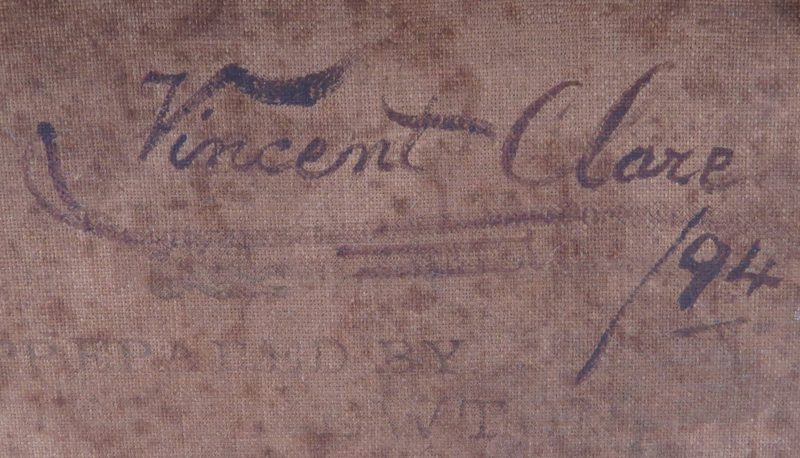 Vincent Clare
/94
PREPARED BY